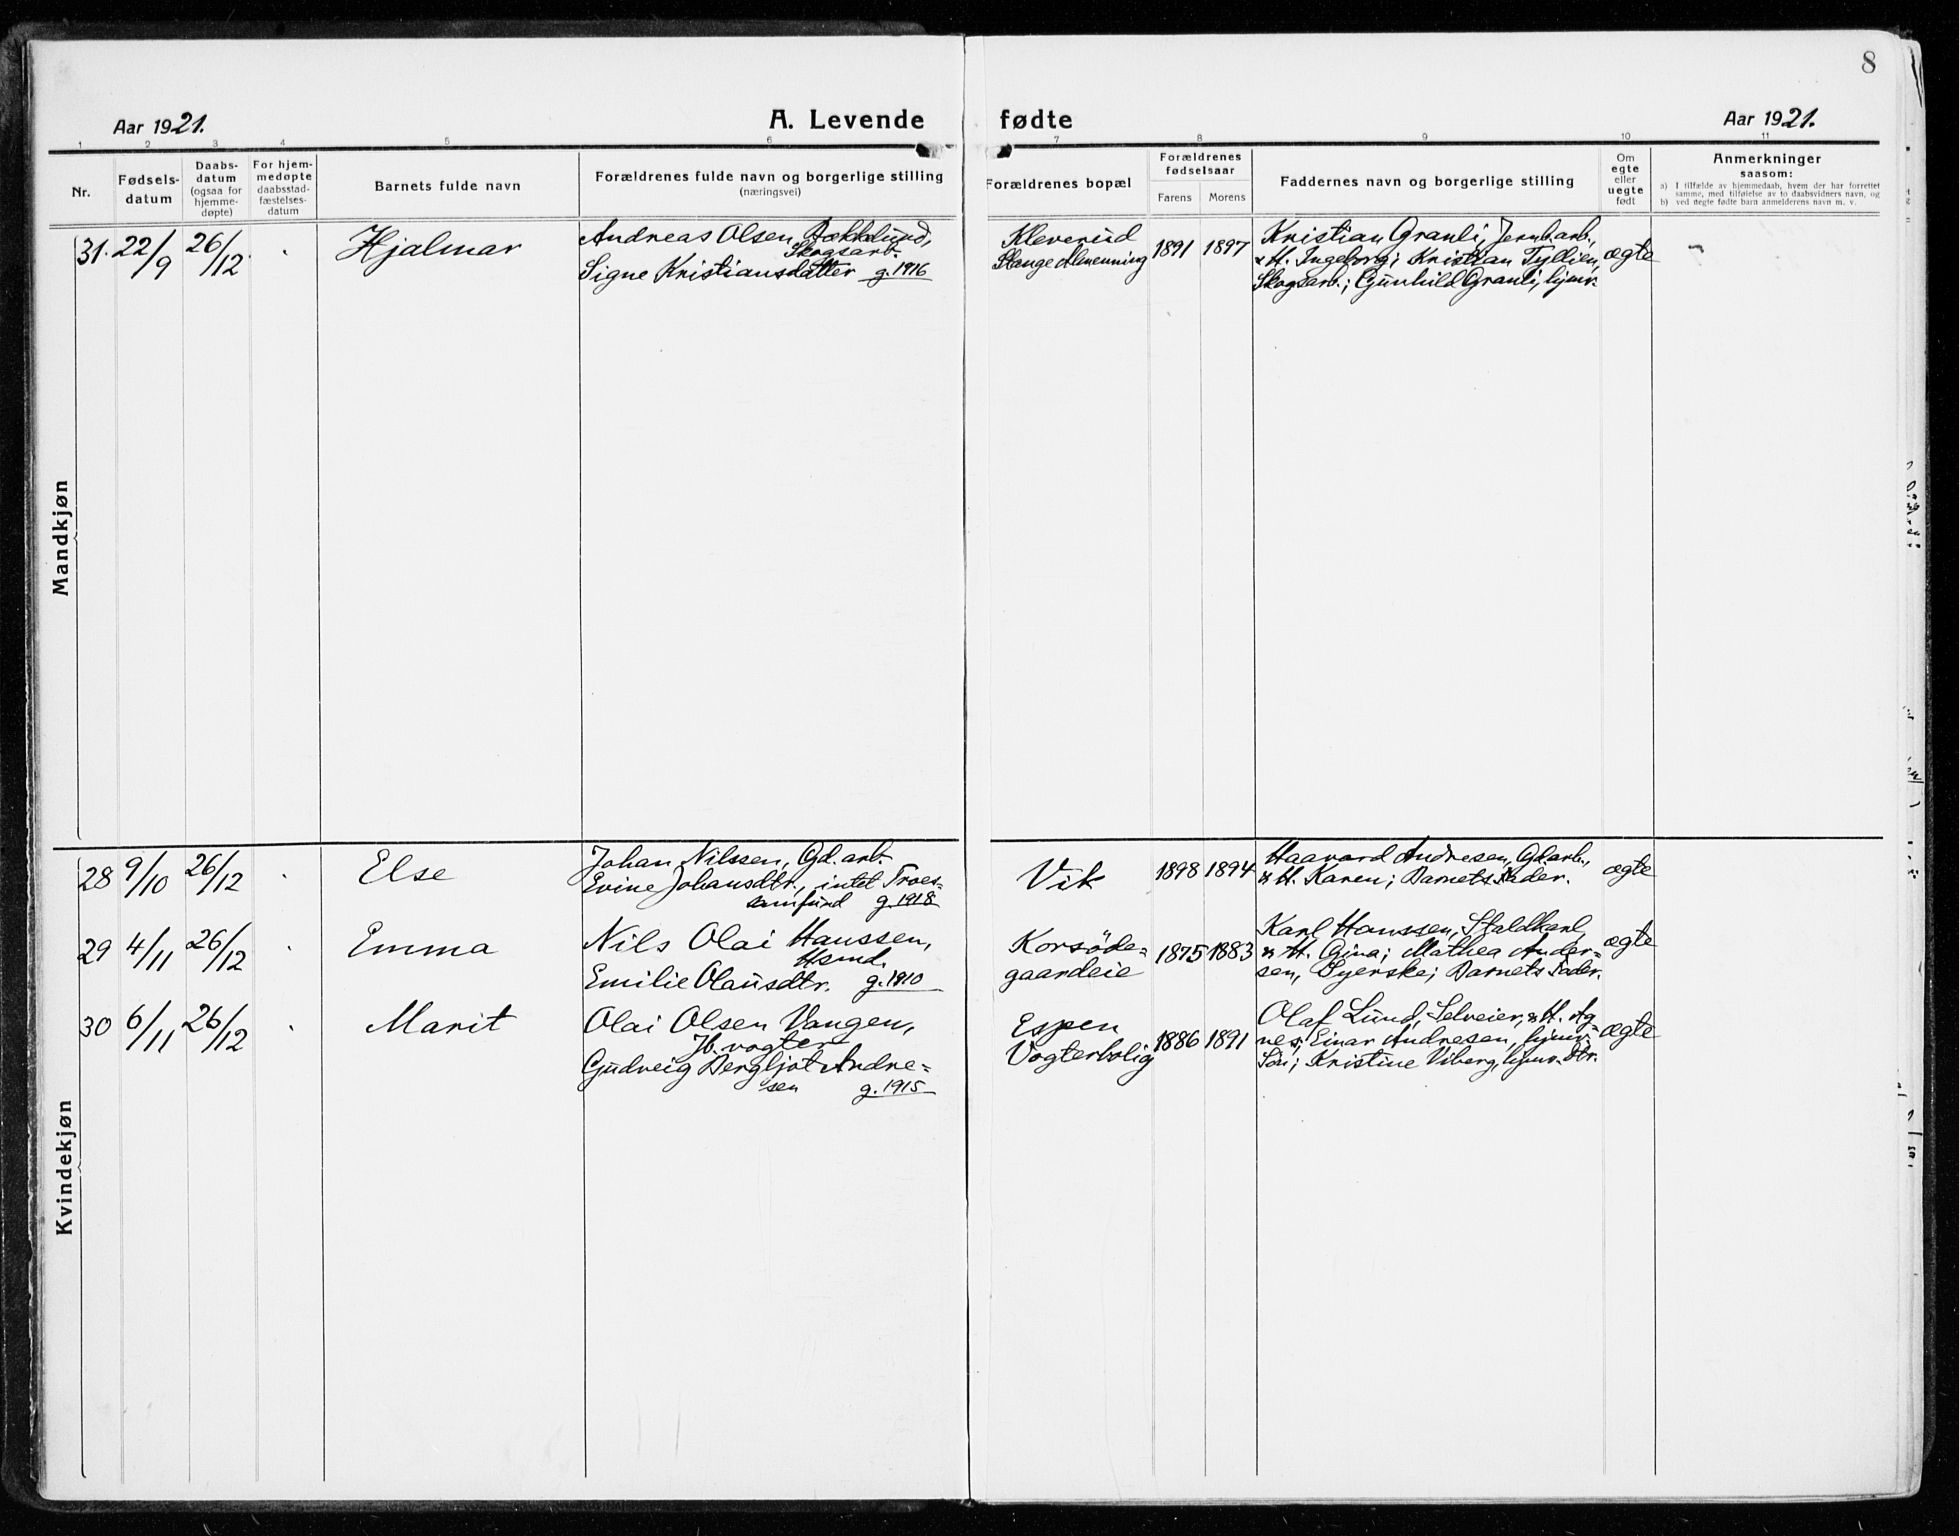 8
Aar 1921.
A. Levende fødte
Aar 1921.
1 2 3 4 5 6 7 8 9 10 11
Nr.
Fødsels-
datum
Daabs-
datum
(ogsaa for
hjemme-
døpte)
For hjem-
medøpte
daabsstad-
fæstelses-
datum
Barnets fulde navn
Forældrenes fulde navn og borgerlige stilling
(næringsvei)
Forældrenes bopæl
Forældrenes
fødselsaar
Farens Morens
Faddernes navn og borgerlige stilling
Om
egte
eller
uegte
født
Anmerkninger
saasom:
a) I tilfælde av hjemmedaab, hvem der har forrettet
samme, med tilføielse av to daabsvidners navn, og
b) ved uegte fødte barn anmelderens navn m. v.
Mandkjøn
31. 22/9 26/12 Hjalmar
Andreas Olsen Bækkelund,
Skogsarb.
Signe Kristiansdatter g. 1916
Kleverud
Stange Almenning
1891 1897
Kristian Granli, Jernb.arb.,
& H. Ingeborg; Kristian Tyllien,
Skogsarb.; Gunhild Granli, hjmv.
ægte
Kvindekjøn
28 9/10 26/12 Else
Johan Nilssen, Gd. arb.
Evine Johansdtr., intet Troes=
samfund g. 1918
Vik
1898 1894
Haavard Andresen, Gd.arb.,
& H. Karen; Barnets Fader.
ægte
29 4/11 26/12 Emma
Nils Olai Hanssen,
Hsmd.
Emilie Olausdtr. g. 1910
Korsöde=
gaardeie
1875 1883
Karl Hanssen, Staldkarl,
& H. Gina; Mathea Ander=
sen, Syerske; Barnets Fader.
ægte
30 6/11 26/12 Marit
Olai Olsen Vangen,
Jb. vogter
Gudveig Bergljot Andre=
sen g. 1915
Espen
Vogterbolig
1886 1891
Olaf Lund, Selveier, & H. Ag=
nes; Einar Andresen, hjmv.
Sön; Kristine Viberg, hjmv. Dtr.
ægte